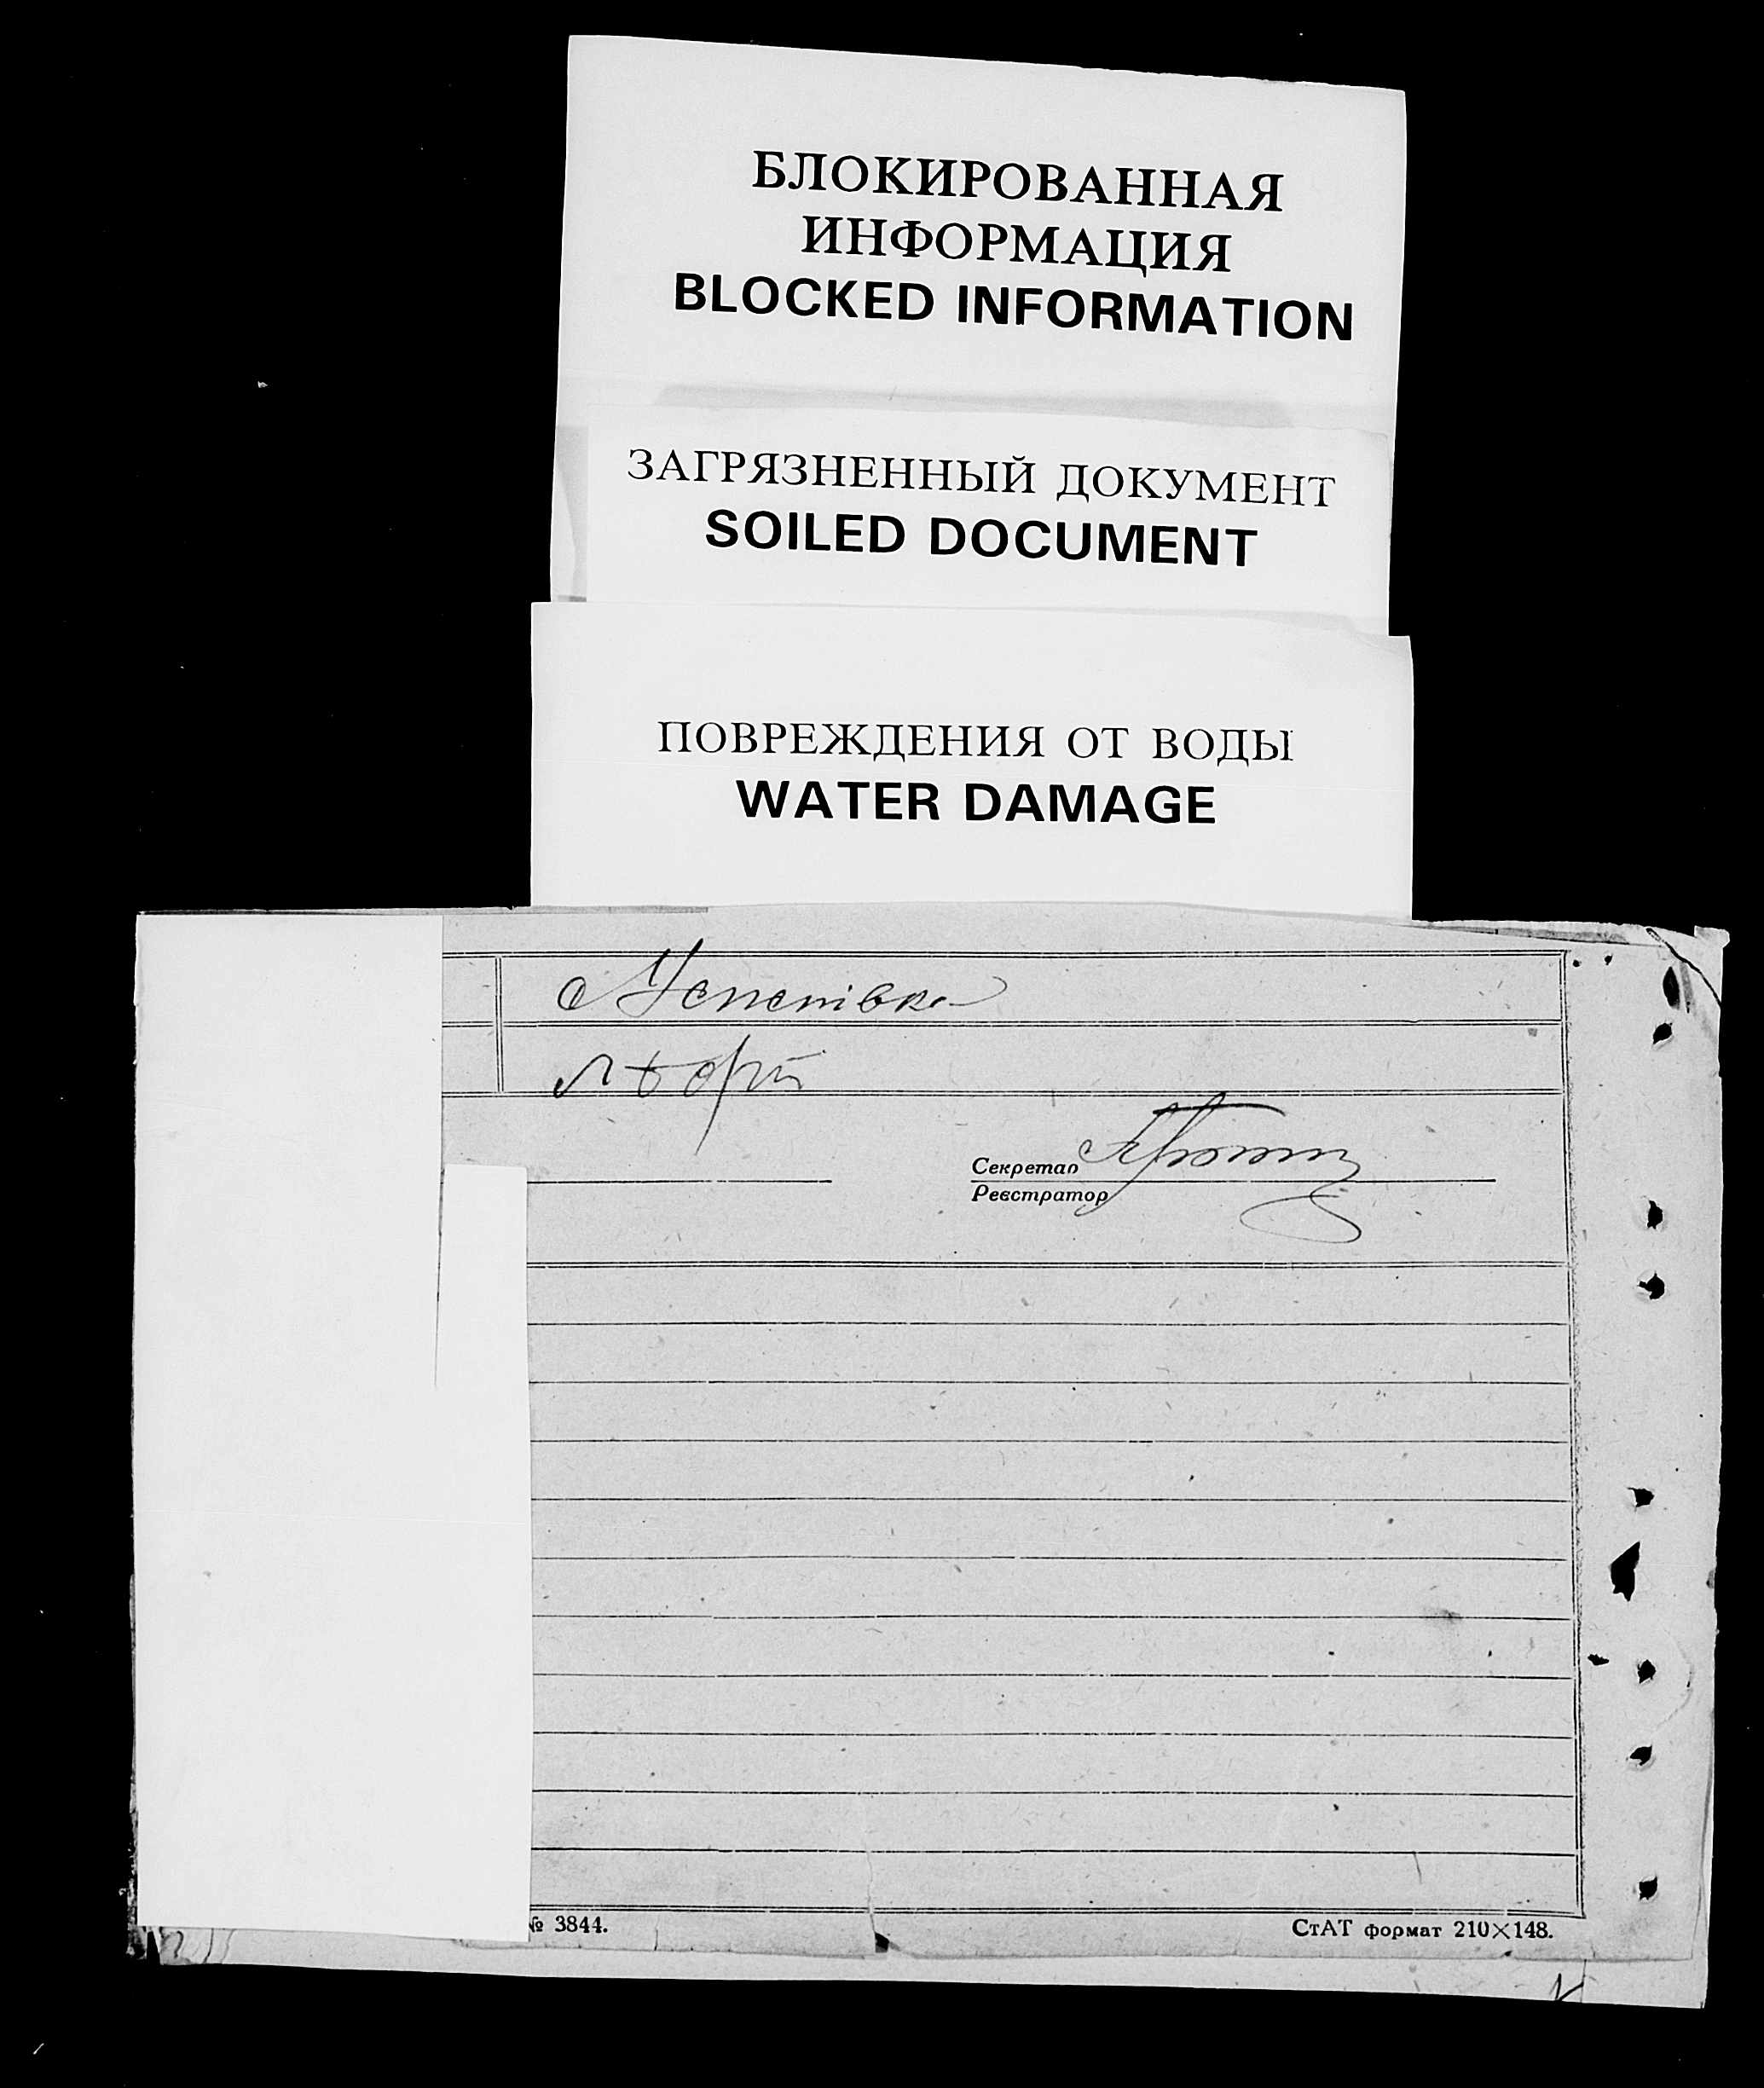 БЛОКИРОВАННАЯ
ИНФОРМАЦИЯ
BLOCKED INFORMATION
ЗАГРЯЗНЕННЫЙ ДОКУМЕНТ
SOILED DOCUMENT
ПОВРЕЖДЕНИЯ ОТ ВОДЫ
WATER DAMAGE
Секретар
Реєстратор
№ 3844.
СтАТ формат 210×148.